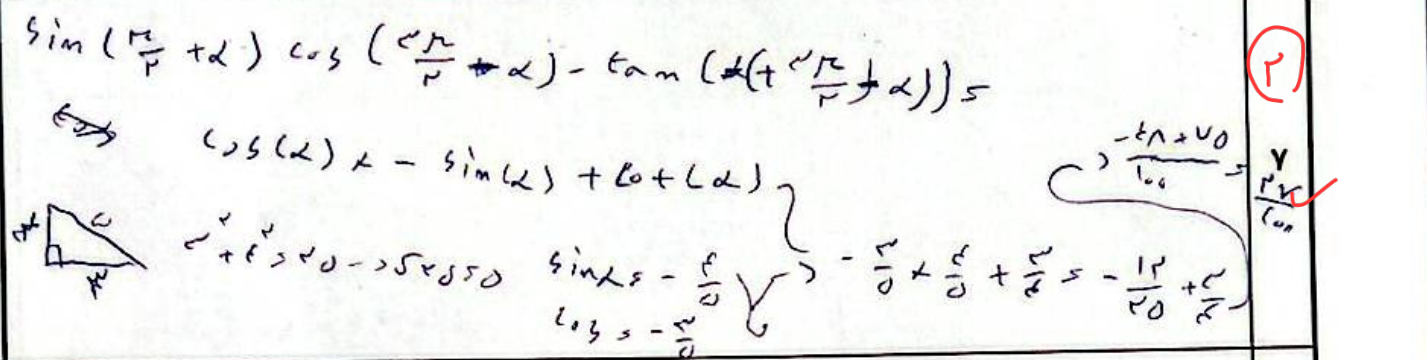 sin(π/۲ + α) cos(۳π/۲ + α) - tan(۳π/۲ + α)) =
cos(α) × - sin(α) + cot(α)
۳² + ۴² = ۲۵ → √۲۵ = ۵ sinα = - ۴/۵ - ۳/۵ × ۴/۵ + ۳/۴ = - ۱۲/۲۵ + ۳/۴
cos = - ۳/۵
-۴۸ + ۷۵/۱۰۰ =
۲۷/۱۰۰
۲
۷